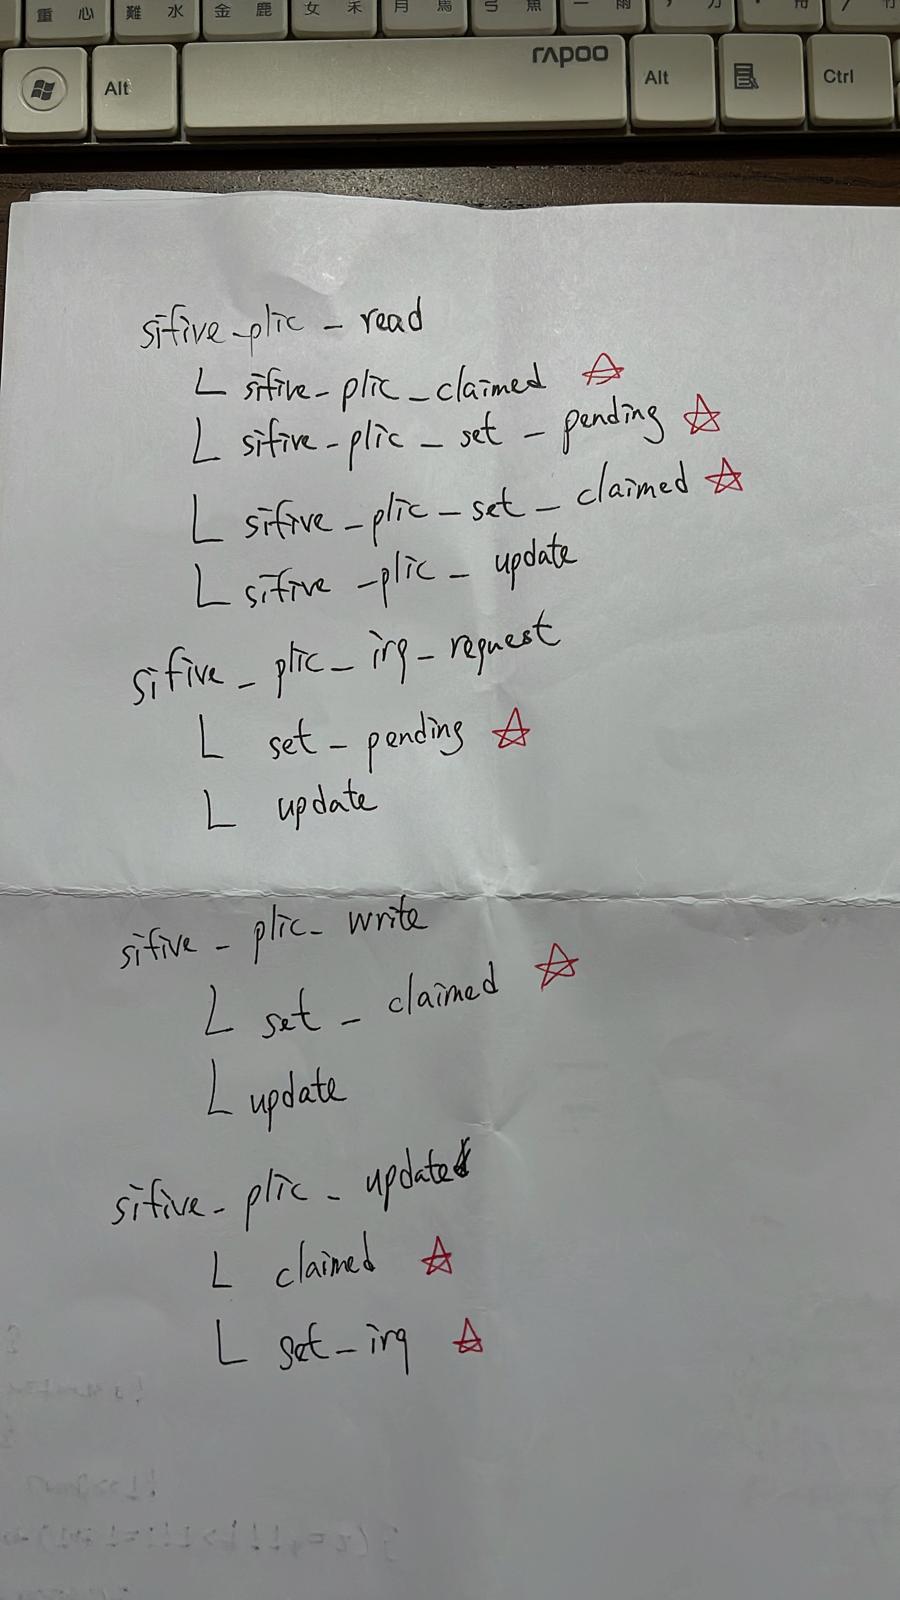 重 心 難 水 金 鹿 女 禾 月 馬 弓 魚 一 雨
Alt rapoo Alt Ctrl
sifive_plic_read
L sifive_plic_claimed ☆
L sifive_plic_set_pending ☆
L sifive_plic_set_claimed ☆
L sifive_plic_update
sifive_plic_irq_request
L set_pending ☆
L update
sifive_plic_write
L set_claimed ☆
L update
sifive_plic_update
L claimed ☆
L set_irq ☆